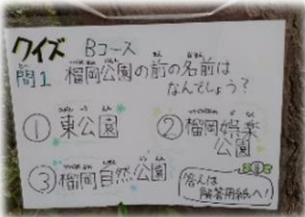 クイズ Bコース
問1 榴岡公園の前の名前は
なんでしょう?
① 東公園
② 榴岡娯楽
公園
③ 榴岡自然公園
答えは
解答用紙へ!